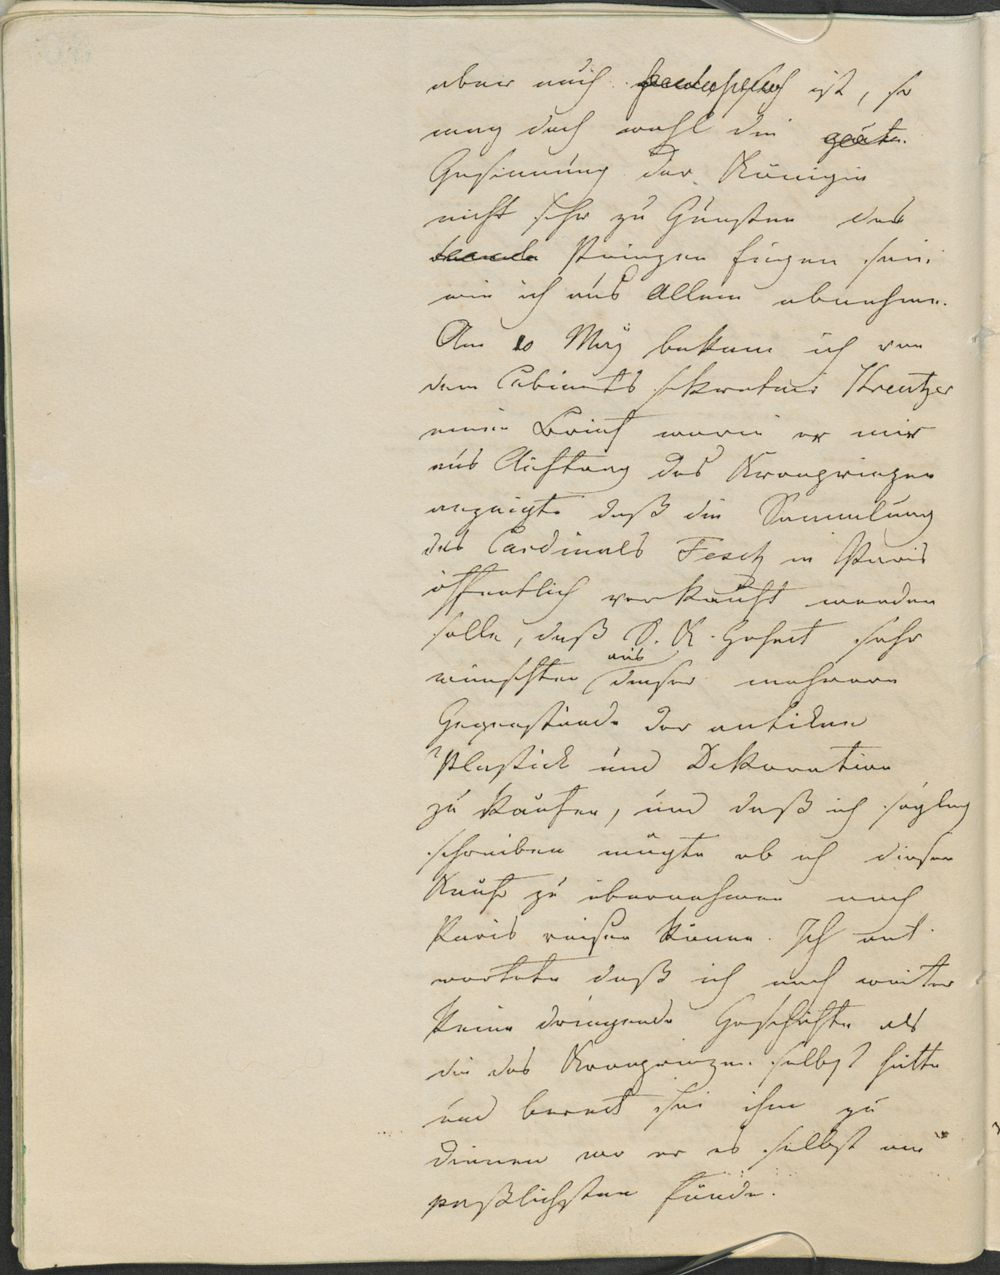 aber auch ist, so
mag doch wohl die
Gesinnung der Königin
nicht sehr zu Gunsten des
Prinzen Eugen sein.
wie ich aus Allem abnehme.
Am 10 May bekam ich von
dem Cabinets sekretair Kreutzer
einen Brief worin er mir
aus Auftrag des Kronprinzen
anzeigte daß die Sammlung
des Cardinals Fesch in Paris
öffentlich verkauft werden
solle, daß S. K. Hoheit sehr
wünschten aus dieser mehrere
Gegenstände der antiken
Plastick und Dekoration
zu kaufen, und daß ich sogleich
schreiben mögte ob ich diesen
Kauf zu übernehmen nach
Paris reisen könne. Ich ant
wortete daß ich auch weiter
keine dringende Geschäfte als
die des Kronprinzen selbst hätte
und bereit sei ihm zu
dienen wo er es selbst am
paßlichsten fände.